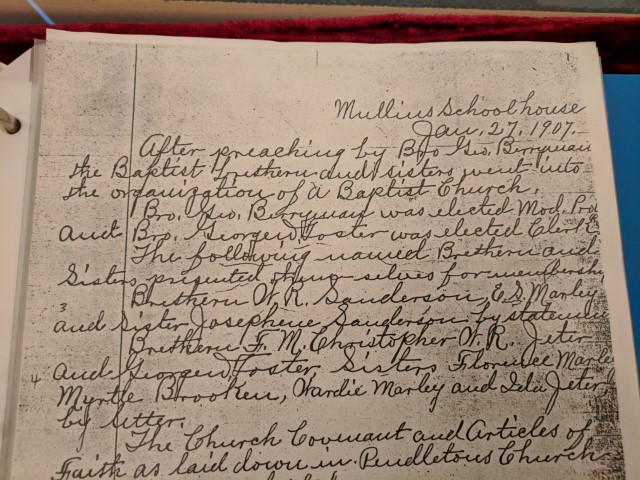 Mullins Schoolhouse
Jan. 27, 1907.
After preaching by Bro Geo. Berryman
the Baptist brethern and sisters went into
the organization of a Baptist Church.
Bro. Geo. Berryman was elected Mod. Pro
and Bro. George Foster was elected Clerk
The following named Brethern and
Sisters presented them selves for membership
3
Brethern W. R. Sanderson, E. S. Marley
and Sister Josephene Sanderson by statement
Brethern F. M. Christopher W. R. Jeter
4
and Foster, Sisters Florence Marley
Myrtle Brooken, Wardie Marley and Ida Jeter
by letter.
The Church Covenant and Articles of
Faith as laid down in Pendletons Church